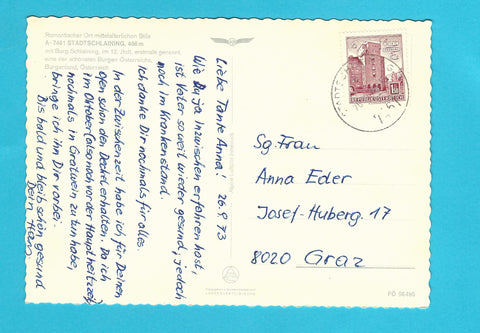 Romantischer Ort mittelalterlichen Stils
A-7461 STADTSCHLAINING, 406 m
mit Burg Schlaining, im 12. Jhdt. erstmals genannt,
eine der schönsten Burgen Österreichs,
Burgenland, Österreich
Liebe Tante Anna! 26.9.73
Wie Du ja inzwischen erfahren hast,
ist Vater soweit wieder gesund, jedoch
noch im Krankenstand.
Ich danke Dir nochmals für alles.
In der Zwischenzeit habe ich für Deinen
open schon den Deckel erhalten. Da ich
im Oktober (also noch vor der Hauptheizzeit)
nochmals in Gratwein zu tun habe,
bringe ich ihn Dir vorbei.
Bis bald und bleib schön gesund
Dein Hans
REPUBLIK ÖSTERREICH
Sg. Frau
Anna Eder
Josef-Huberg. 17
8020 Graz